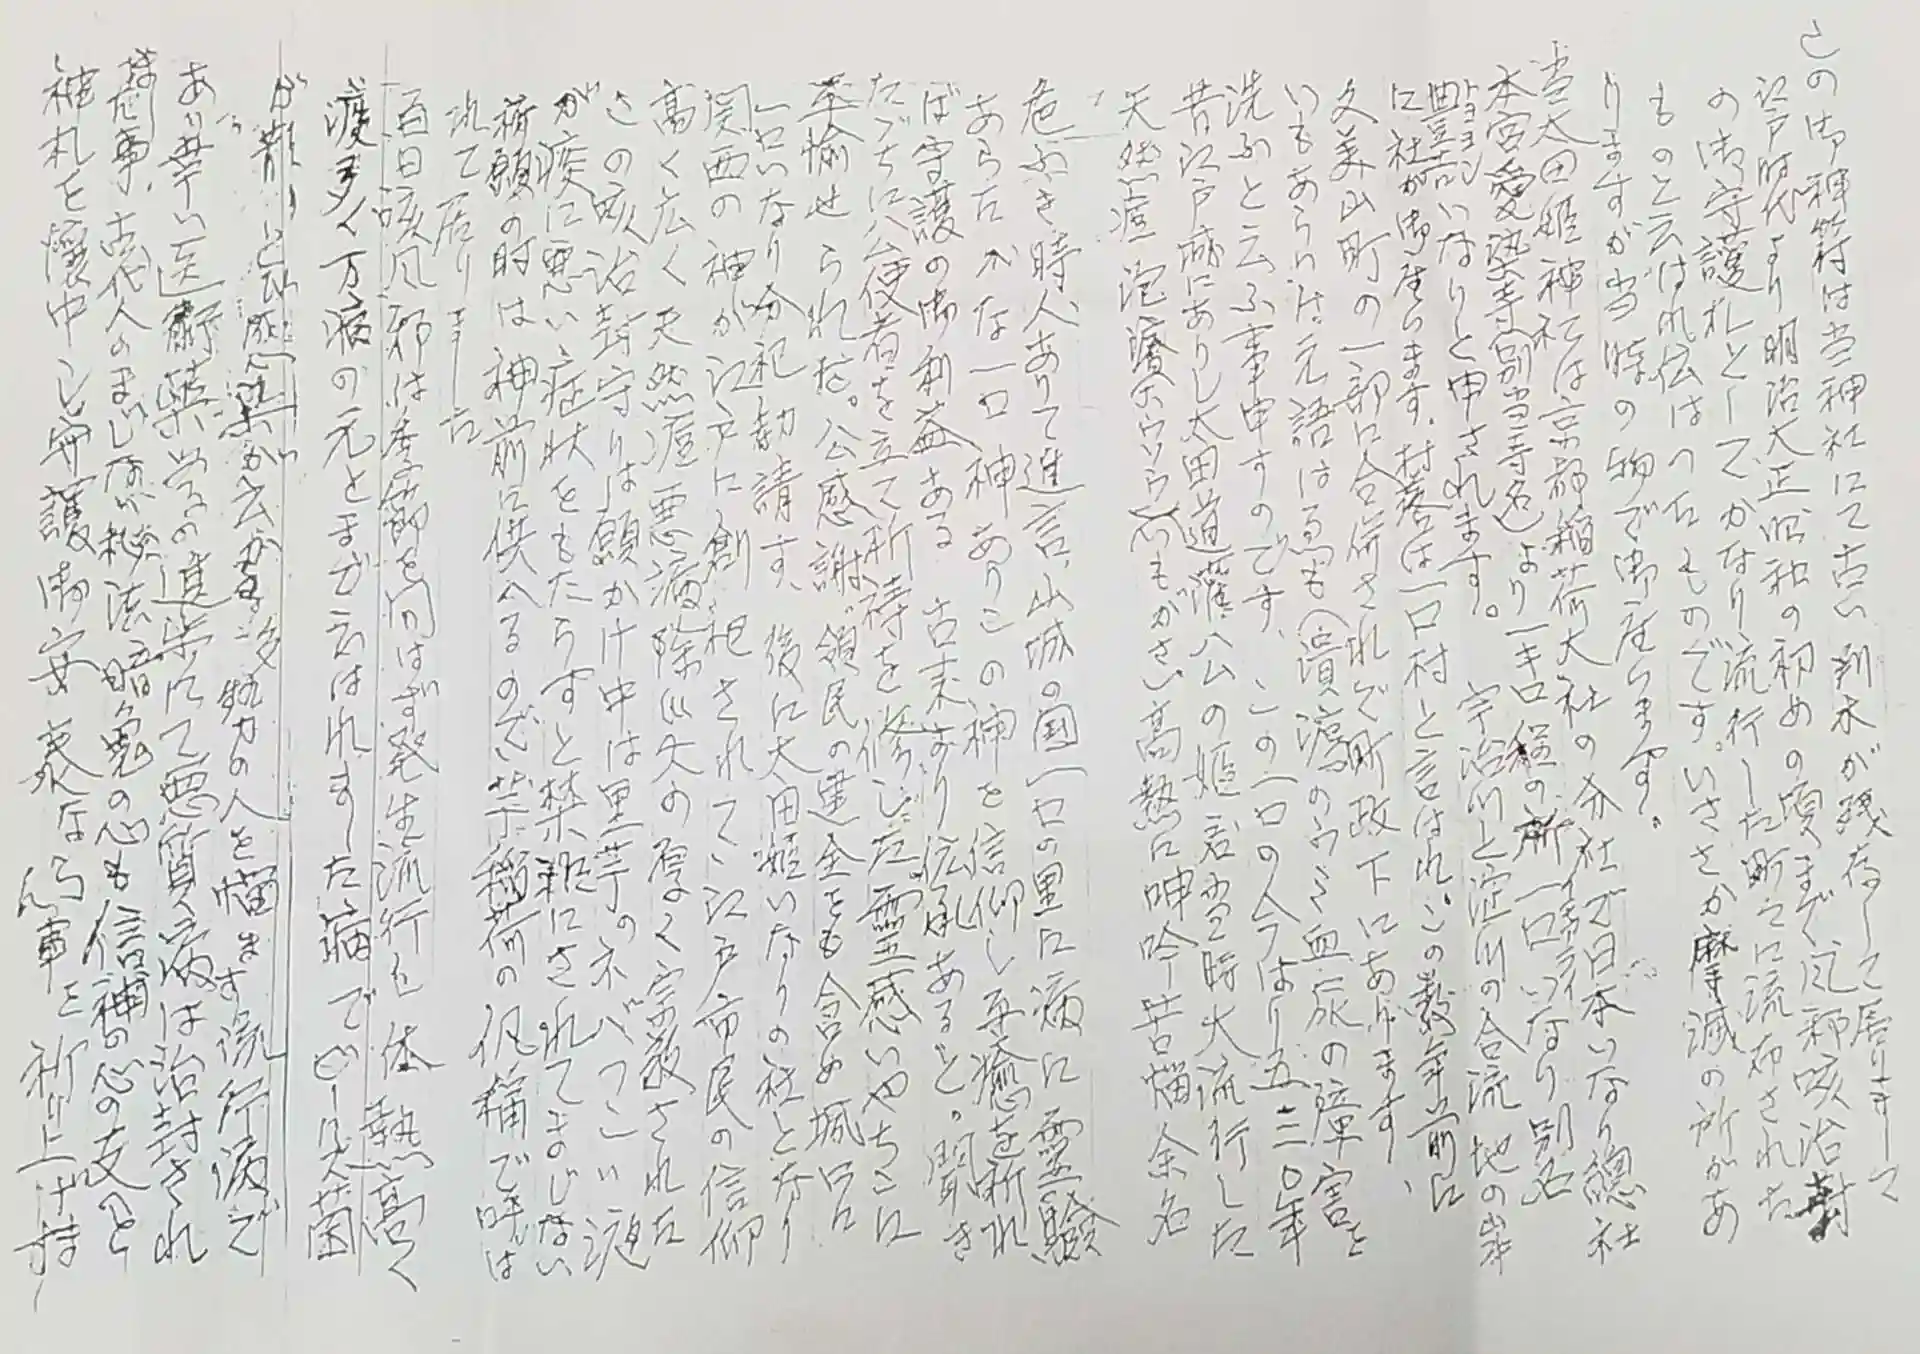 この御神符は当神社にて古い判木が残存して居りまして
江戸時代より明治大正昭和の初めの頃まで風邪咳治封
の御守護札としてかなり流行した町々に流布された
ものと云はれ伝はったものです。いささか磨滅の所があ
りますが当時の物で御座います。
当太田姫神社は京都稲荷大社の分社で日本いなり總社
本宮愛染寺(別当寺名)より一キロ程の所 一口いなり別名
豊吉いなりと申されます。 宇治川と淀川の合流地の岸
に社が御座います。村落は一口村と言はれ。この数年前に
久美山町の一部に合併されで町政下にあります、
いもあらいは元語はゐも(潰瘍のウミ血灰の障害を
洗ふと云ふ事申すのです、この一口の今はり五三〇年
昔江戸城にありし太田道灌公の姫君当時大流行した
天然痘 疱瘡ホウソウ(もがさ)高熱に呻吟苦悩余名
危ふき時人ありて進言、山城の国一口の里に病に霊験
あらたかな一口神ありこの神を信仰し平癒を祈れ
ば守護の御利益ある 古来より伝承あると。聞き
たゞちに公使者を立て祈祷を修じた霊感いやちこに
平愉せられた。公感謝領民の建全をも含め城内に
一口いなり分祀勧請す、後に太田姫いなりの社となり
関西の神が江戸に創祀されてい江戸市民の信仰
高く広く天然痘悪病除災大の厚く宗敬された
この咳治封守りは願かけ中は里芋のネバつこい液
が痰に悪い症状をもたらすと禁粗にされてまじない
祈願の時は神前に供へるのでい芋稲荷の仇稱で呼は
れて居りました
百日咳風邪は季節を問はず発生流行し体熱高く
渡多く万病の元とまで云はれました病でした菌
が散り
あり幸い医術薬学の進歩にて悪質い病は治封され
な事、古代人のまじない秘法暗鬼の心も信神の心の支のと
神札を懐中し守護御安泰な行事を祈り上げます